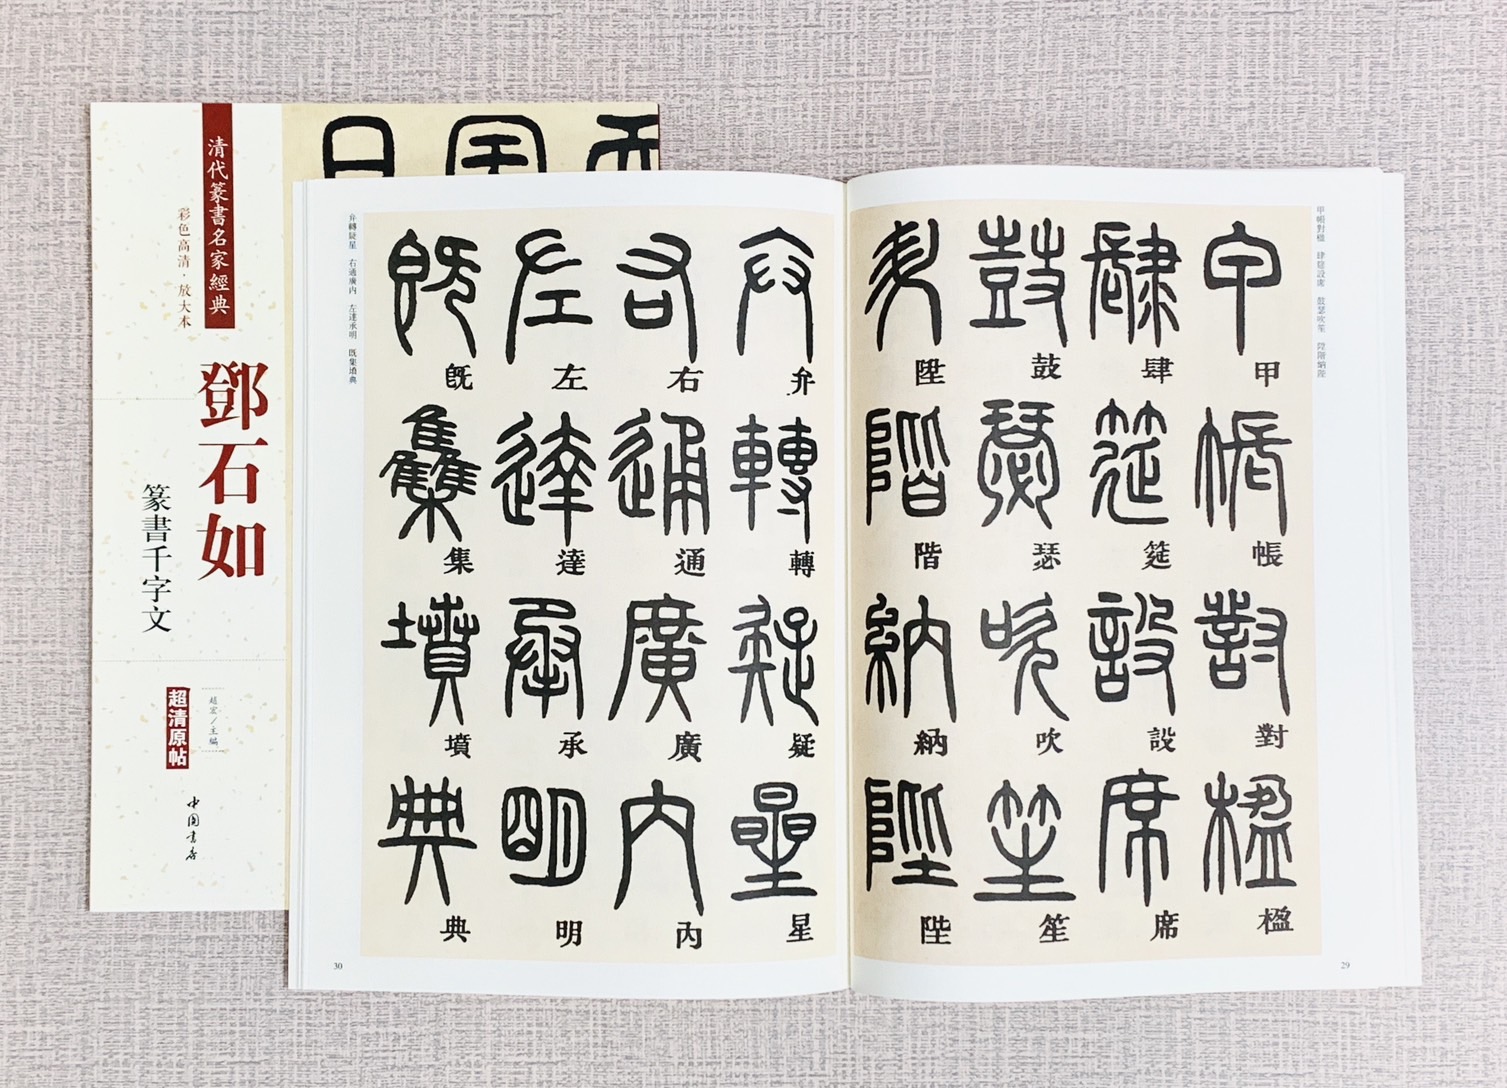 清代篆書名家經典
彩色高清·放大本
鄧石如
篆書千字文
趙宏／主編
超清原帖
中国书店
甲帳對楹 肆筵設席 鼓瑟吹笙 陞階納陛
甲帳對楹
肆筵設席
鼓瑟吹笙
陞階納陛
29
弁轉疑星 右通廣内 左達承明 既集墳典
弁轉疑星
右通廣内
左達承明
既集墳典
30